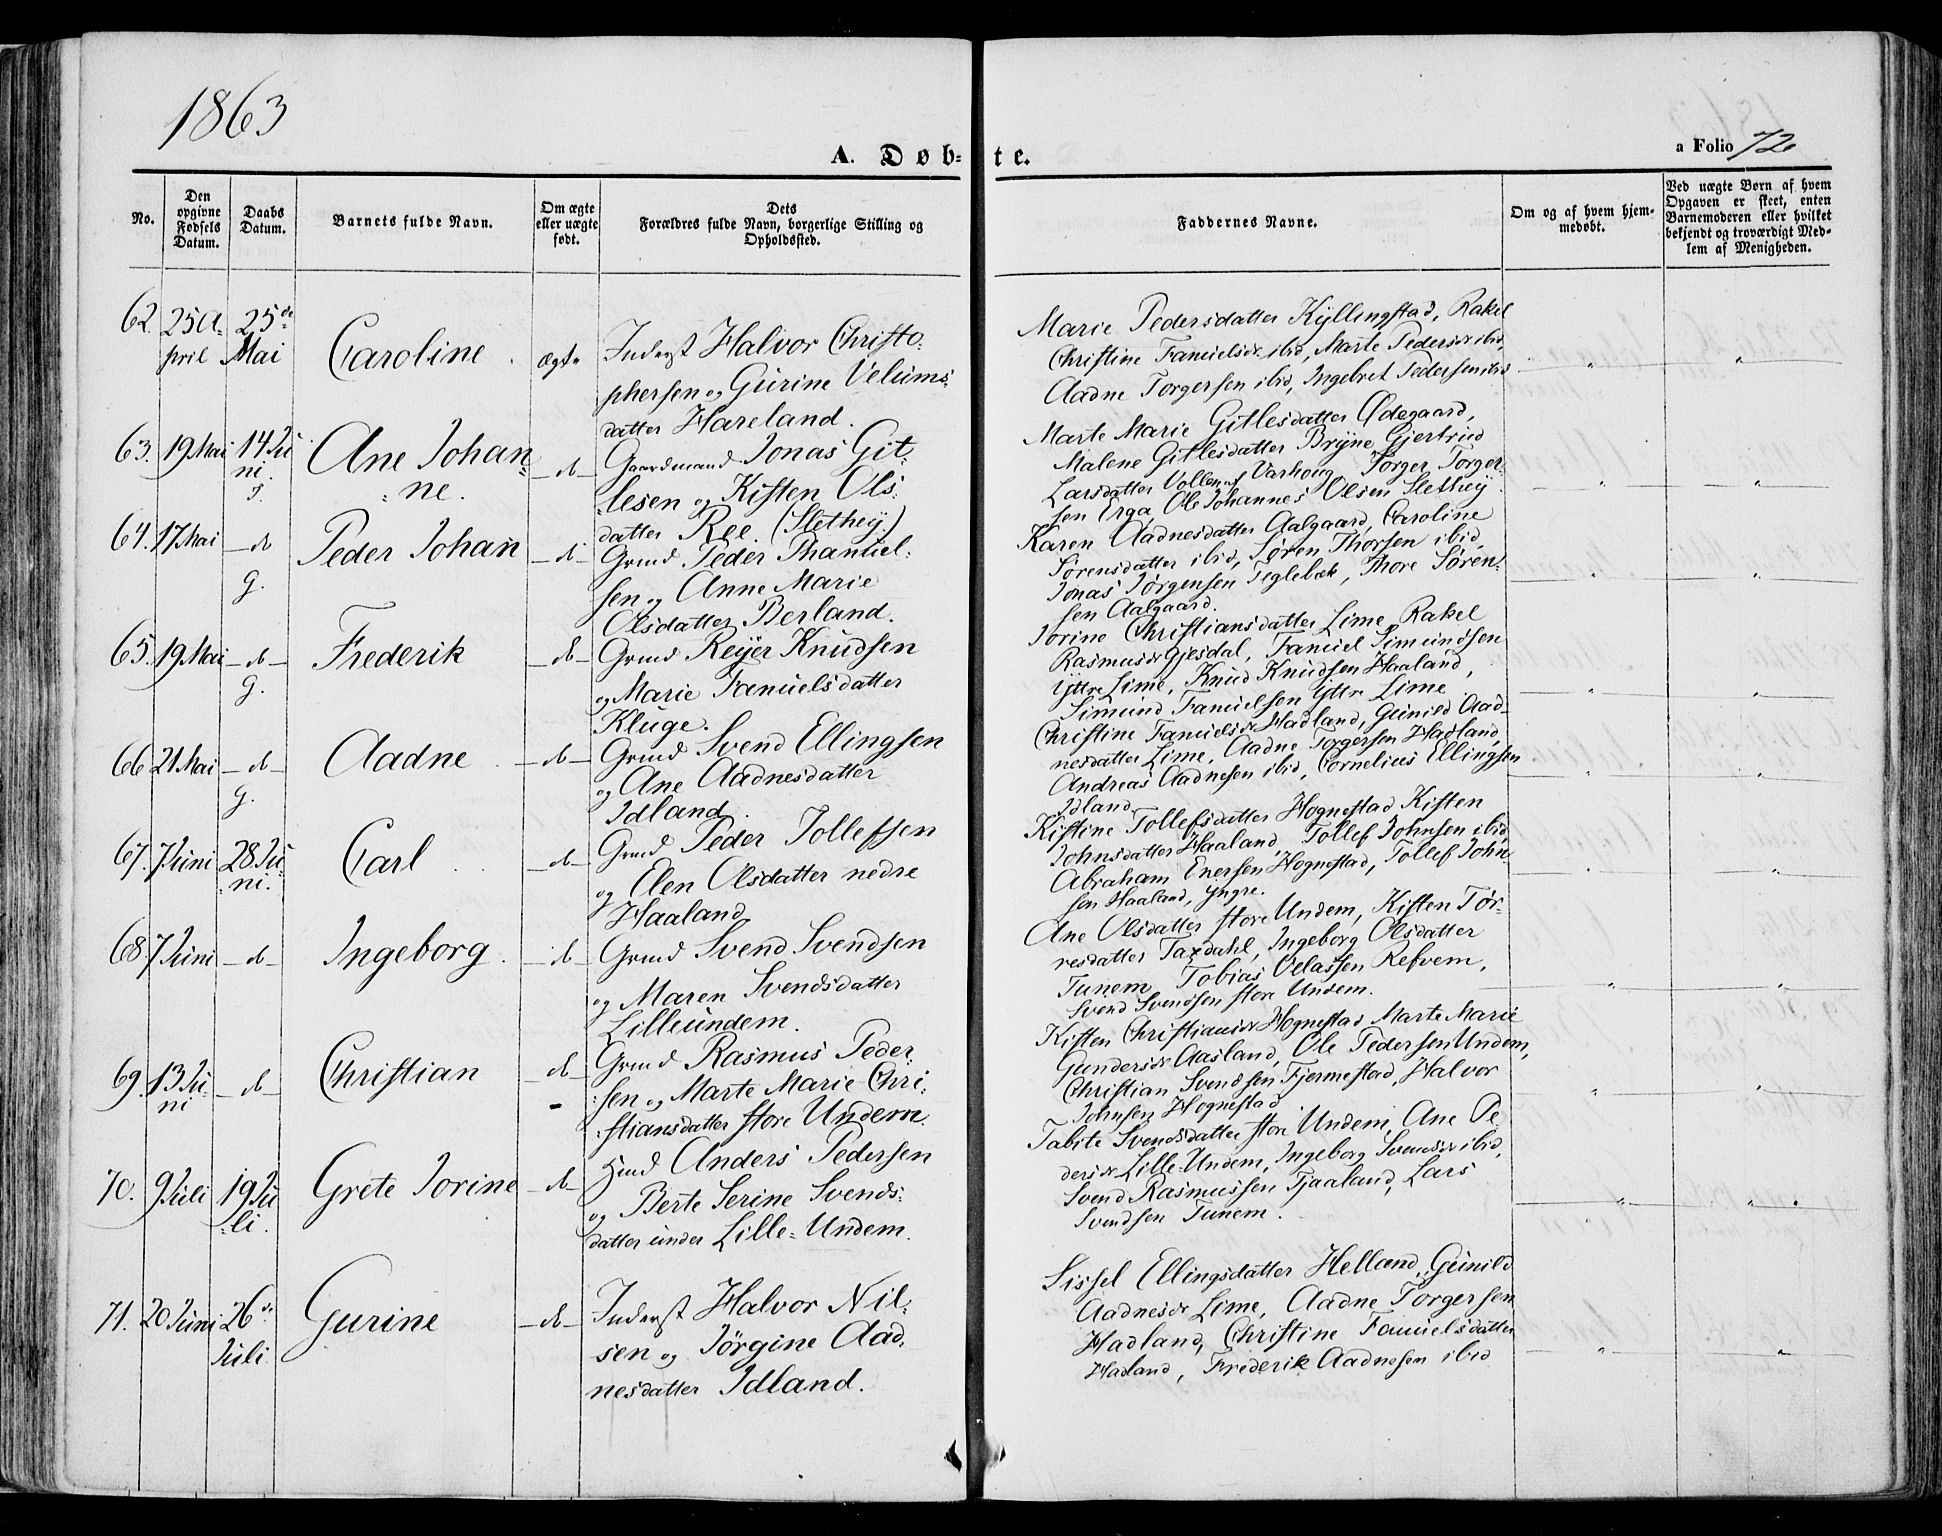 1863
A. Døb-
te.
a Folio 72
No.
Den
opgivne
Fødsels
Datum.
Daabs
Datum.
Barnets fulde Navn.
Om ægte
eller uægte
født.
Dets
Forældres fulde Navn, borgerlige Stilling og
Opholdssted.
Faddernes Navne.
Om og af hvem hjem-
medøbt.
Ved uægte Børn af hvem
Opgaven er skeet, enten
Barnemoderen eller hvilket
bekjendt og troværdigt Med-
lem af Menigheden.
62. 25 A-
pril
25de
Mai
Caroline.
ægte
Inderst Halvor Christo-
phersen og Gurine Velums-
datter Hareland.
Marie Pedersdatter Kyllingstad, Rakel
Christine Tamielsdr ibid, Marte Pedersdr ibid,
Aadne Torgersen ibid, Ingebret Pedersen ibid
63. 19 Mai
14 Ju
ni.
Ane Johan-
ne.
do
Gaardmand Jonas Git-
lesen og Kisten Ols-
datter Ree. (Slethey)
Marte Marie Gitlesdatter Ødegaard,
Malene Gitlesdatter Bryne, Gjertrud
Larsdatter Vollen af Varhoug, Torger Torger-
sen Erga, Ole Johannes Olsen Slethey.
64. 17 Mai
do
G.
Peder Johan
do
Grmd Peder Thamiel-
sen og Anne Marie
Olsdatter Berland.
Karen Aadnesdatter Aalgaard, Caroline
Sørensdatter ibid, Søren Thorsen ibid,
Jonas Jørgensen Teglebæk, Thore Søren-
sen Aalgaard.
65. 19 Mai
do
G.
Frederik
do
Grmd Reyer Knudsen
og Marie Tamielsdatter
Kluge.
Jorine Christiansdatter Lime, Rakel
Rasmusdr Gjesdal, Tamiel Simundsen
Yttre Lime, Knud Knudsen Haaland,
Simund Tamielsen Yttre Lime
66 21 Mai
do
G.
Aadne.
do
Grmd Svend Ellingsen
og Ane Aadnesdatter
Idland.
Christine Tamielsdr Hadland, Gunild Aad-
nesdatter Lime, Aadne Torgersen Hadland,
Andreas Aadnesen ibid, Cornelius Ellingsen
Idland.
67. 7 Juni
28 Ju-
ni.
Carl
do
Grmd Peder Tollefsen
og Elen Olsdatter nedre
Haaland
Kistine Tollefsdatter Hognestad, Kisten
Johnsdatter Haaland, Tollef Johnsen ibid,
Abraham Enersen Hognestad, Tollef John
sen Haaland, yngre.
68 7 Juni
do
Ingeborg.
do
Grmd Svend Svendsen
og Maren Svendsdatter
Lilleundem.
Ane Olsdatter store Undem, Kisten Tør-
resdatter Taxdahl, Ingeborg Olsdatter
Tunem, Tobias Velassen Refvem,
Svend Svendsen store Undem.
69. 13 Ju-
ni
do
Christian
do
Grmd Rasmus Peder-
sen og Marte Marie Chri-
stiansdatter store Undem.
Kisten Christiansdr Hognestad, Marte Marie
Gundersdr Aasland, Ole Pedersen Undem,
Christian Svendsen Fjermestad, Halvor
Johnsen Hognestad
70. 9 Juli
19 Ju
li.
Grete Jorine
do
Hmd Anders Pedersen
og Berte Serine Svends-
datter under Lille-Undem.
Tabite Svendsdatter store Undem, Ane Pe
dersdr Lille-Undem, Ingeborg Svendsdr ibid,
Svend Rasmussen Tjaaland, Lars
Svendsen Tunem.
71. 20 Juni
26de
Juli
Gurine
do
Inderst Halvor Nil-
sen og Jørgine Aad-
nesdatter Idland.
Sissel Ellingsdatter Helland, Gunild
Aadnesdr Lime, Aadne Torgersen
Hadland, Christine Tamielsdatter
Hadland, Frederik Aadnesen ibid